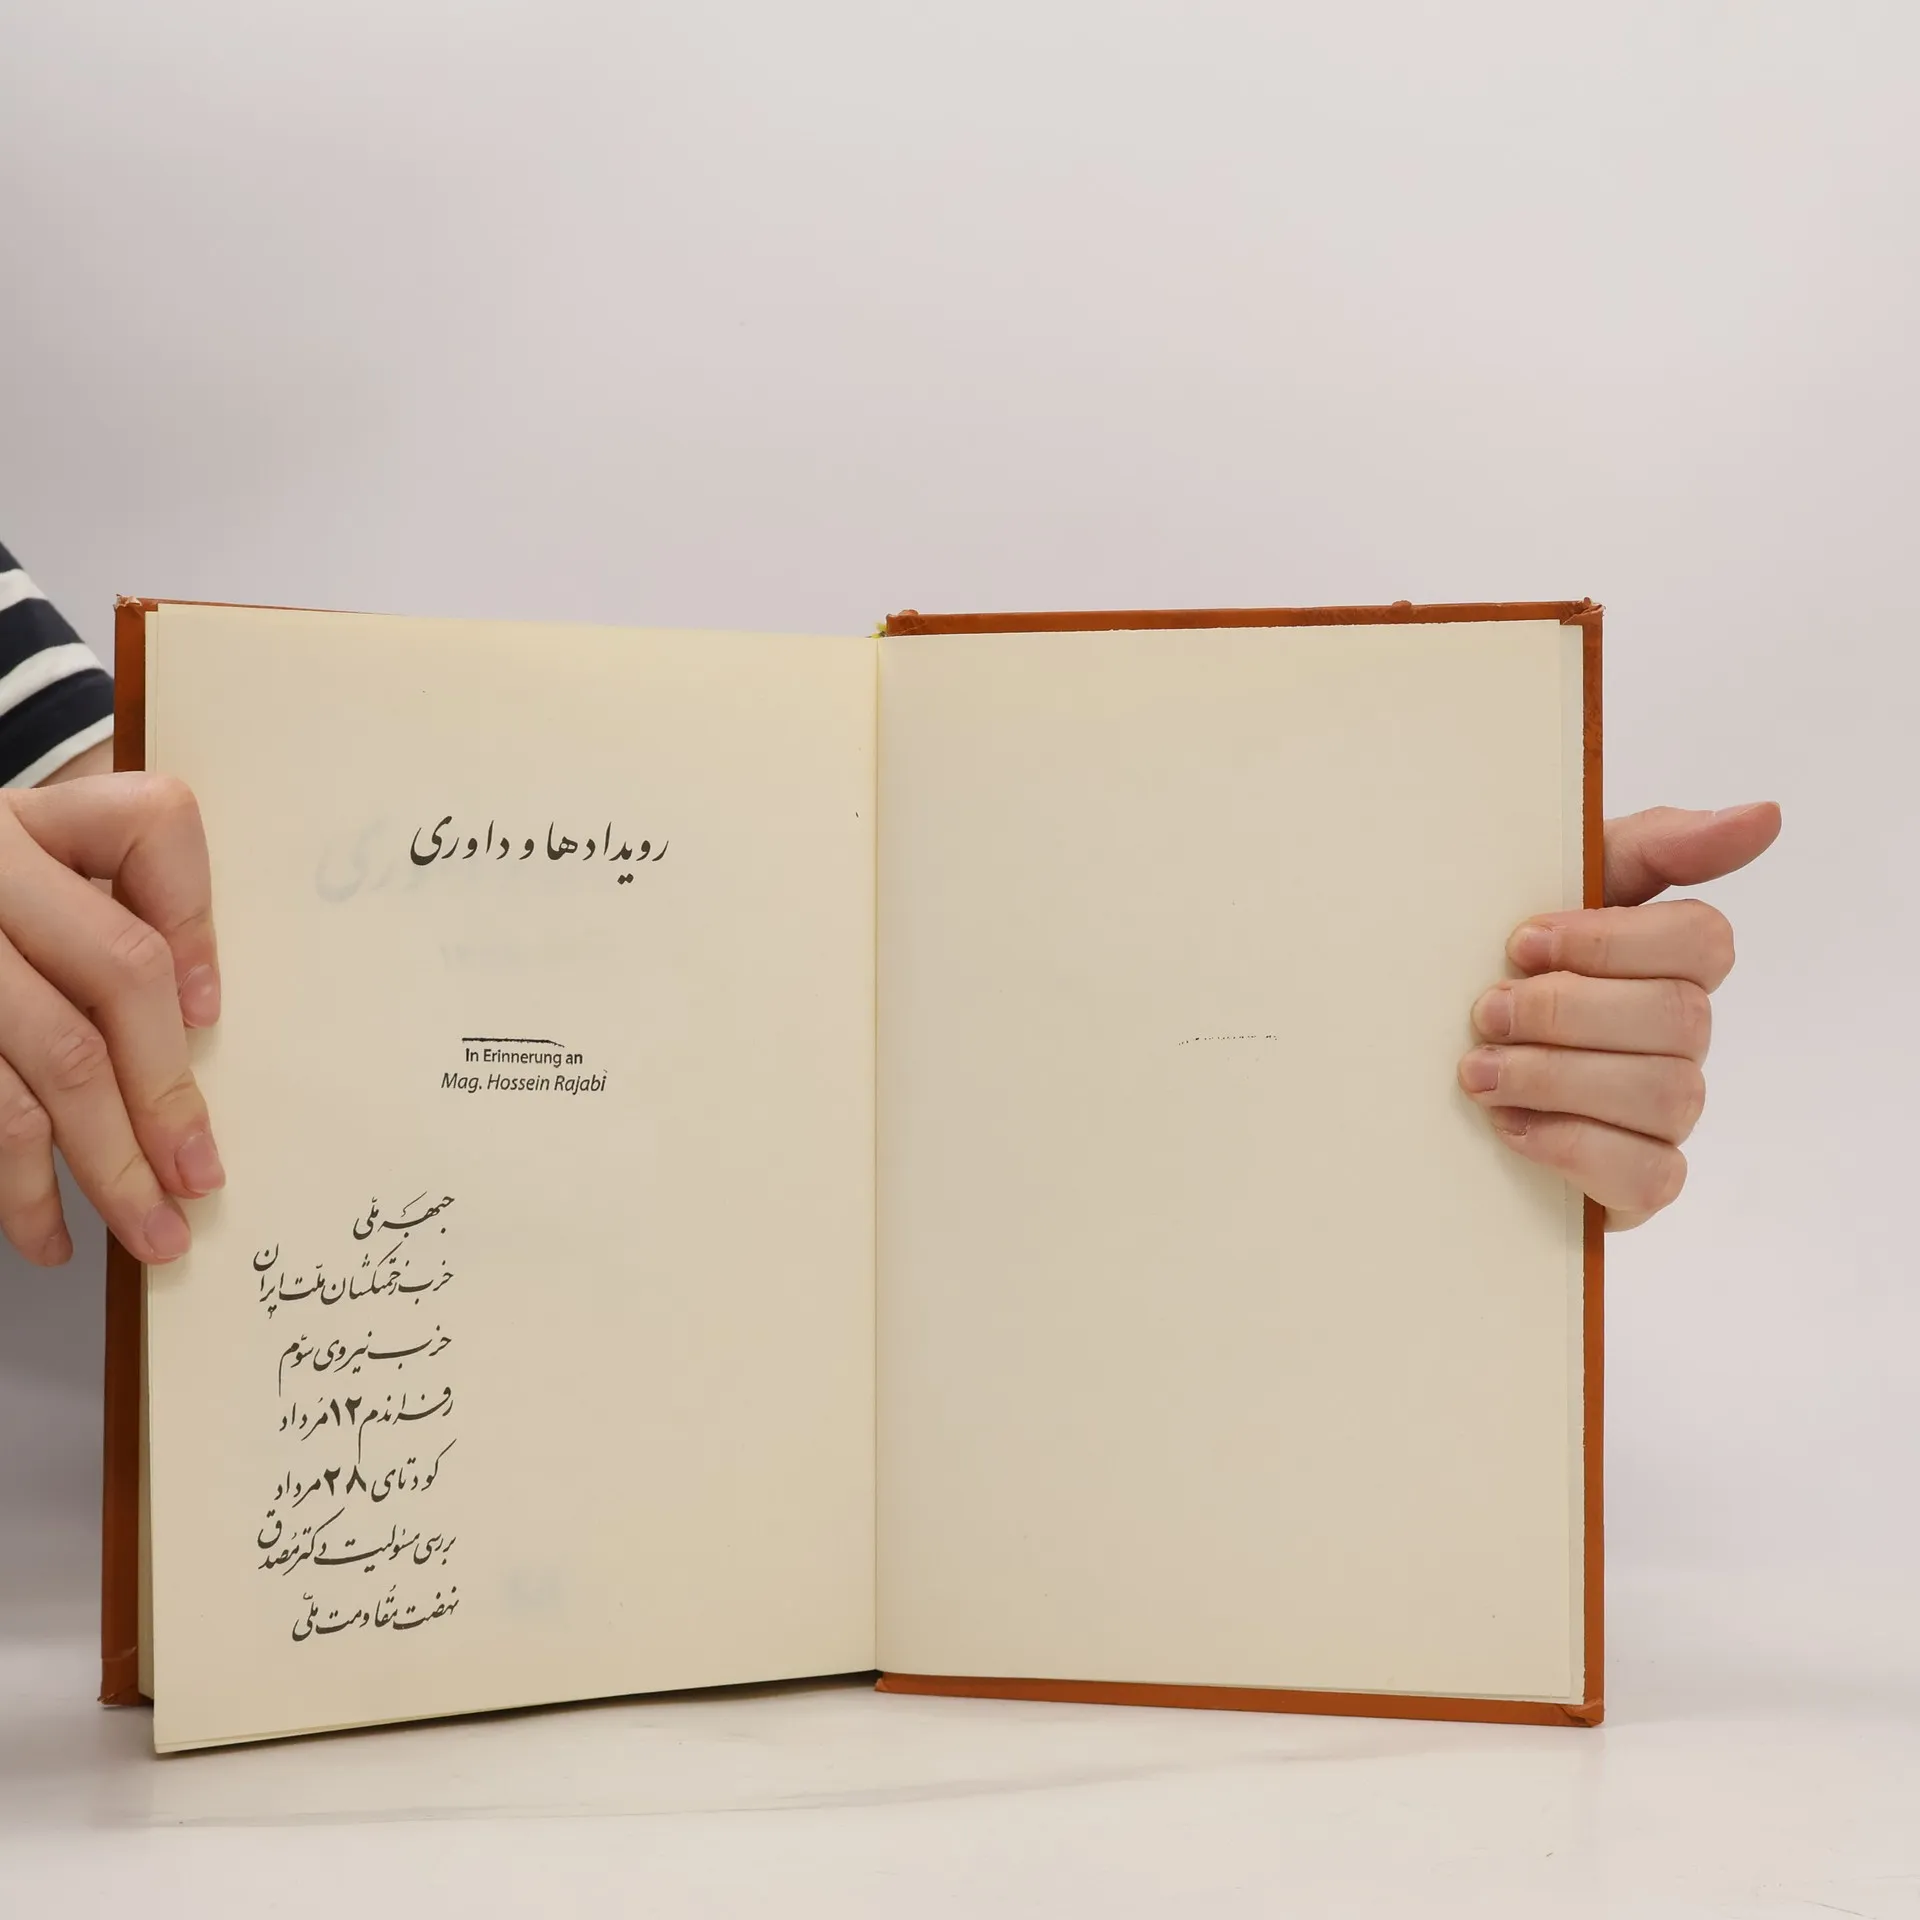 رویدادها و داوری
In Erinnerung an
Mag. Hossein Rajabi
جبهه ملّی
حزب زحمتکشان ملّت ایران
حزب نیروی سوّم
رفراندم ۱۲ مُرداد
کودتای ۲۸ مرداد
بررسی مسئولیت دکتر مُصدق
نهضت مُقاومت ملّی